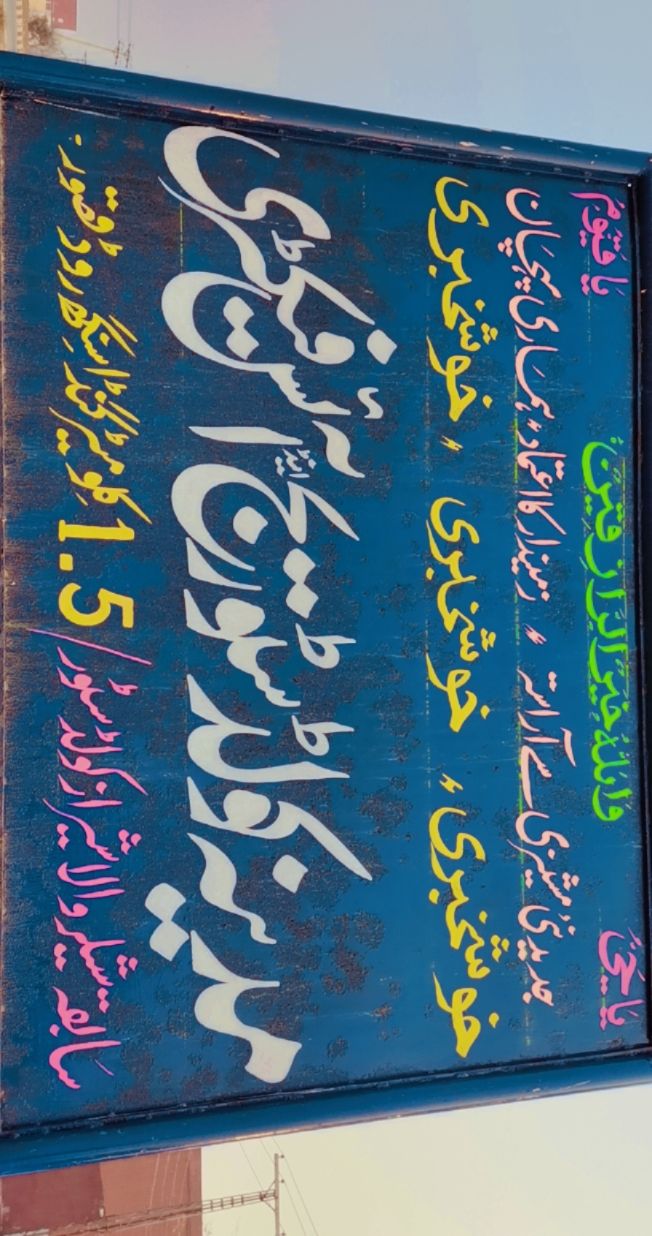 یَا حَیُّ وَاللہُ خَیْرُ الرَّازِقِیْنَ یَا قَیُّوْمُ
جدید نئی مشینری سے آراستہ ٭ زمیندار کا اعتماد، ہماری پہچان
خوشخبری، خوشخبری، خوشخبری
مدینہ کولڈ سٹوریج اینڈ آئس فیکٹری
سابقہ شیلر والا شیراز کولڈ سٹور/ 1.5 کلو میٹر گنڈا سنگھ روڈ قصور۔